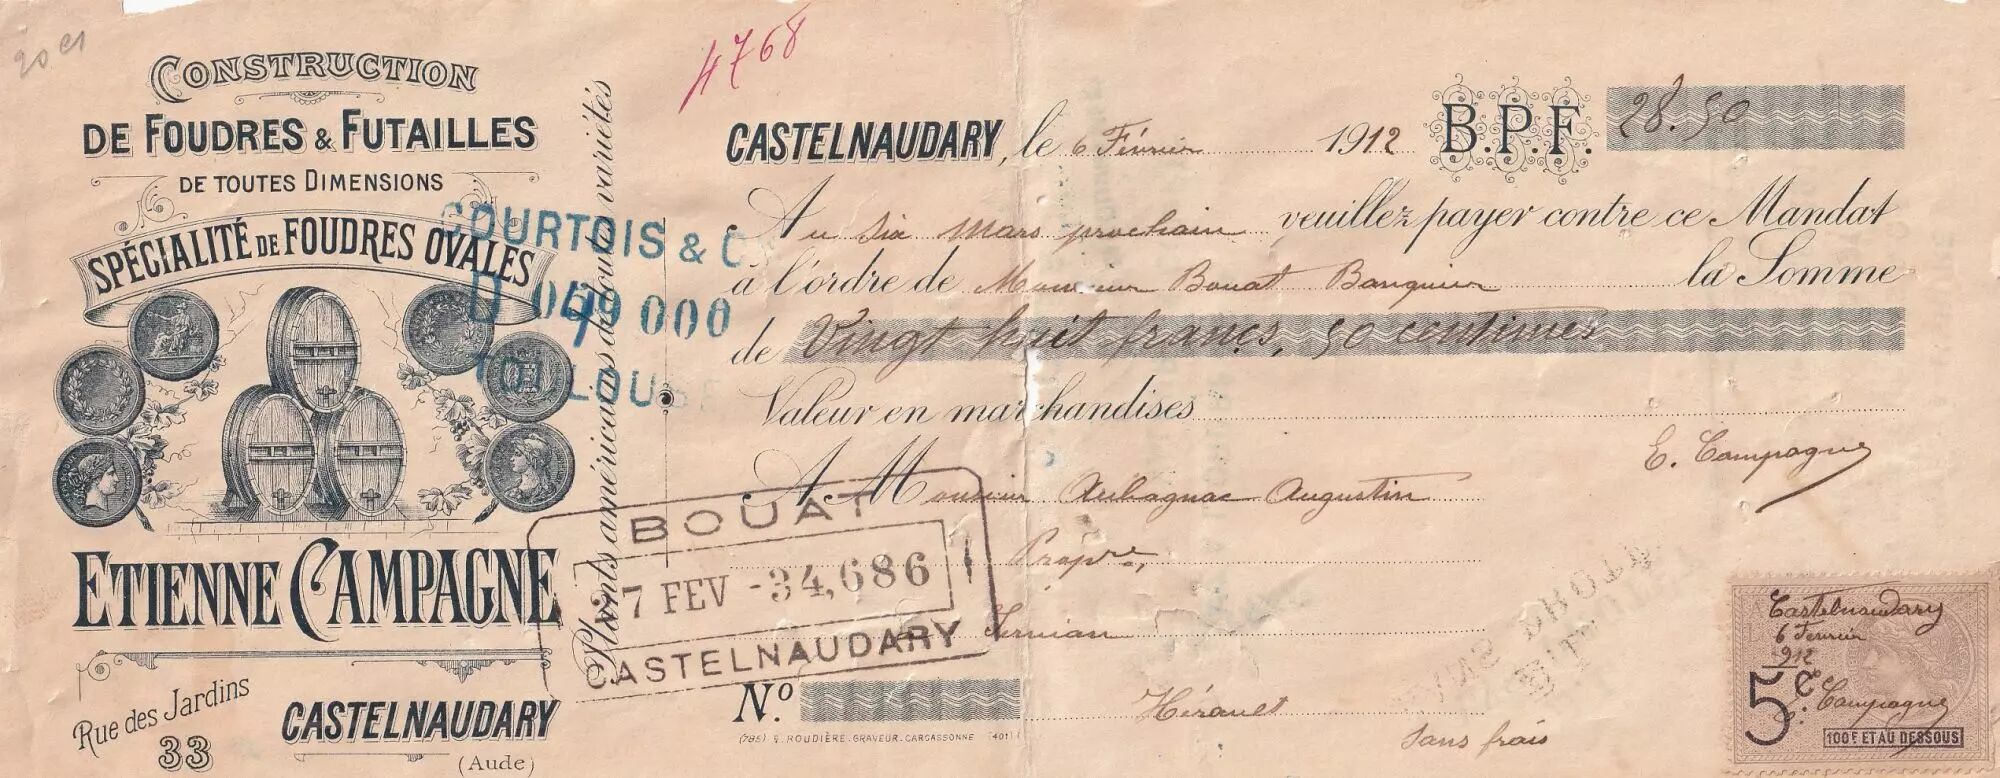 20 c1
4768
CONSTRUCTION
DE FOUDRES & FUTAILLES
DE TOUTES DIMENSIONS
SPÉCIALITÉ DE FOUDRES OVALES
ETIENNE CAMPAGNE
Rue des Jardins
33
CASTELNAUDARY
(Aude)
Plants américains de toutes variétés
COURTOIS & C
000
TOULOUSE
CASTELNAUDARY, le 6 Février 1912 B.P.F. 28.50
Au six Mars prochain veuillez payer contre ce Mandat
à l'ordre de Monsieur Bouat Banquier la Somme
de Vingt huit francs, 50 centimes
Valeur en marchandises
E. Campagne
A Monsieur Aubagnac Augustin
Propre,
Servian
Hérault
Sans frais
BOUAT
7 FEV -34,686
CASTELNAUDARY
N°
(785) E. ROUDIÈRE. GRAVEUR. CARCASSONNE (401)
Castelnaudary
6 Fevrier
912
5c
E. Campagne
100F ET AU DESSOUS